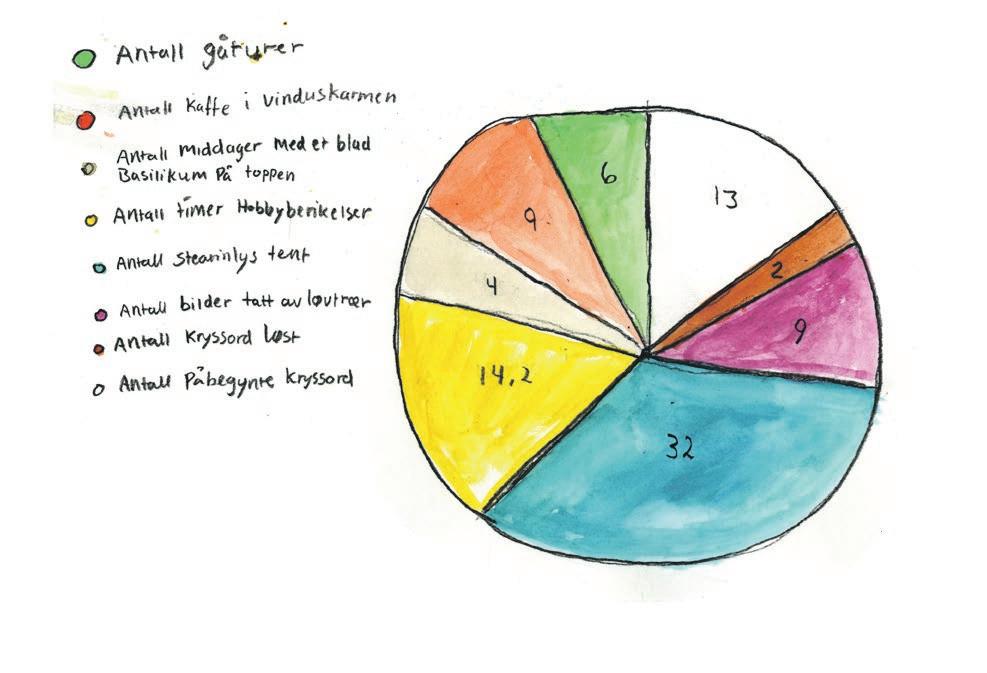 Antall gåturer
Antall Kaffe i vinduskarmen
Antall middager med et blad
Basilikum På toppen
Antall timer Hobbyberikelser
Antall Stearinlys tent
Antall bilder tatt av løvtrær
Antall Kryssord Løst
Antall Påbegynte Kryssord
6
13
9
2
4
9
14,2
32